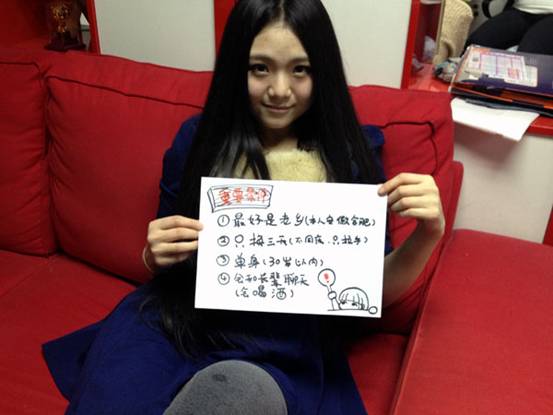 重要条件
① 最好是老乡(本人安徽合肥)
② 只租三天(不同床、只拉手)
③ 单身(30岁以内)
④ 会和长辈聊天
(会喝酒)